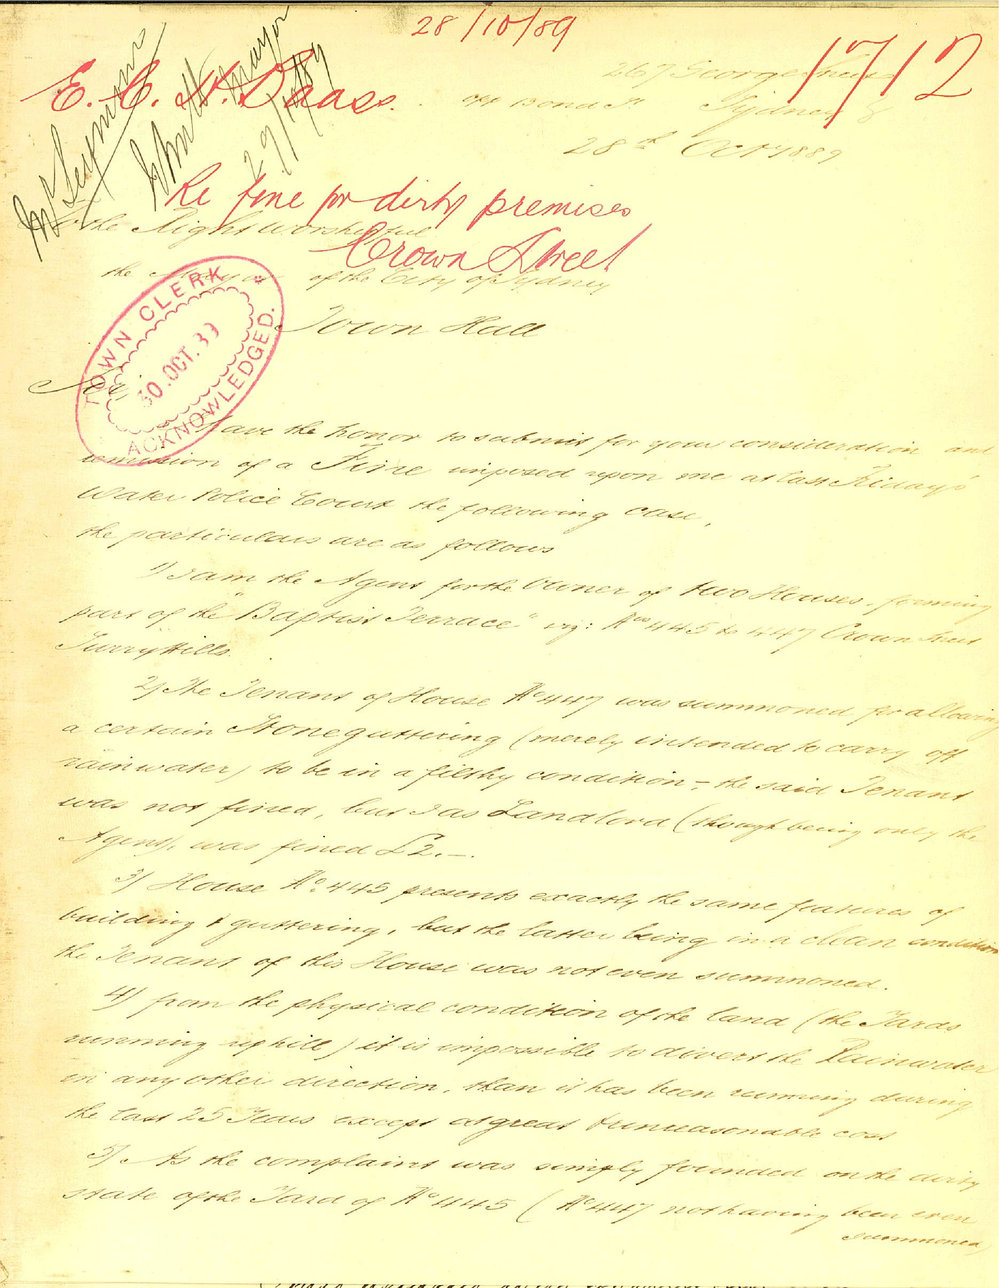 28/10/89
1712
E. C. H. Daass.
267 George Street
off Bond St Sydney
28th Oct 1889
John H Mayor
29/10/89
Re fine for dirty premises
Crown Street
To the Right Worshipful
the Mayor of the City of Sydney
Town Hall
TOWN CLERK
30.OCT.89
ACKNOWLEDGED.
Sir
I have the honor to submit for your consideration and
remission of a Fine imposed upon me at last Friday's
Water Police Court the following case,
the particulars are as follows
1) I am the Agent for the Owner of two Houses, forming
part of the "Baptist Terrace" viz: Nos 445 to 447 Crown Street
Surry Hills.
2) The Tenant of House No 447 was summoned for allowing
a certain Stone guttering (merely intended to carry off
rainwater) to be in a filthy condition, – the said Tenant
was not fined, but I as Landlord (though being only the
Agent), was fined £2.–.
3) House No. 445 presents exactly the same features of
building & guttering, but the latter being in a clean condition
the Tenant of this House was not even summoned.
4) from the physical condition of the land (the Yards
running up hill) it is impossible to divert the Rainwater
in any other direction, than it has been running during
the last 25 Years except at great & unreasonable cost
5) As the complaint was simply founded on the dirty
state of the Yard of No 445 (No 447 not having been even
summoned)